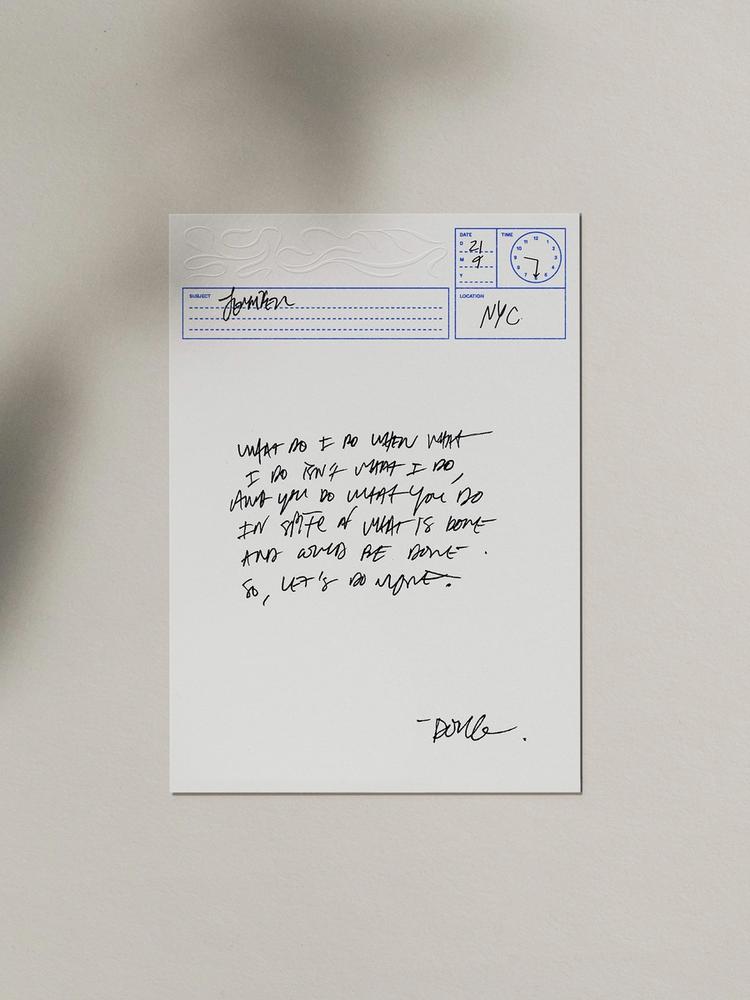 DATE
D 21
M 9
Y
TIME
12
1
2
3
4
5
6
7
8
9
10
11
SUBJECT
LOCATION
NYC
WHAT DO I DO WHEN WHAT
I DO ISN'T WHAT I DO,
AND YOU DO WHAT YOU DO
IN SPITE OF WHAT IS DONE
AND COULD BE DONE.
SO, LET'S DO MORE.